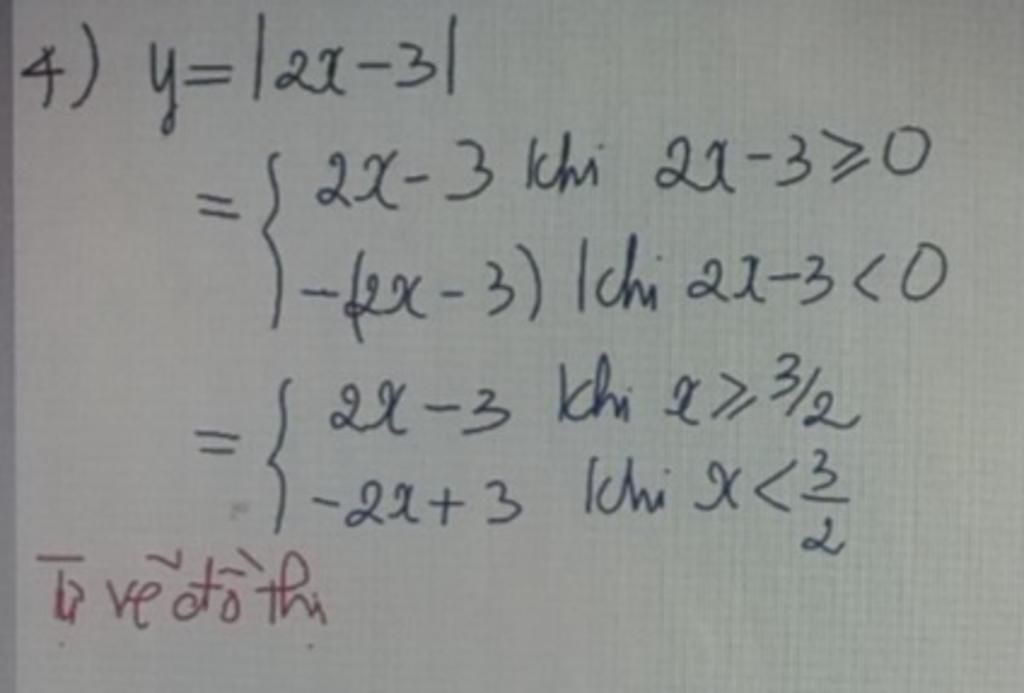 4) y = |2x - 3|
= { 2x - 3 khi 2x - 3 ⩾ 0
-(2x - 3) khi 2x - 3 < 0
= { 2x - 3 khi x ⩾ 3/2
-2x + 3 khi x < 3/2
Tự vẽ đồ thị